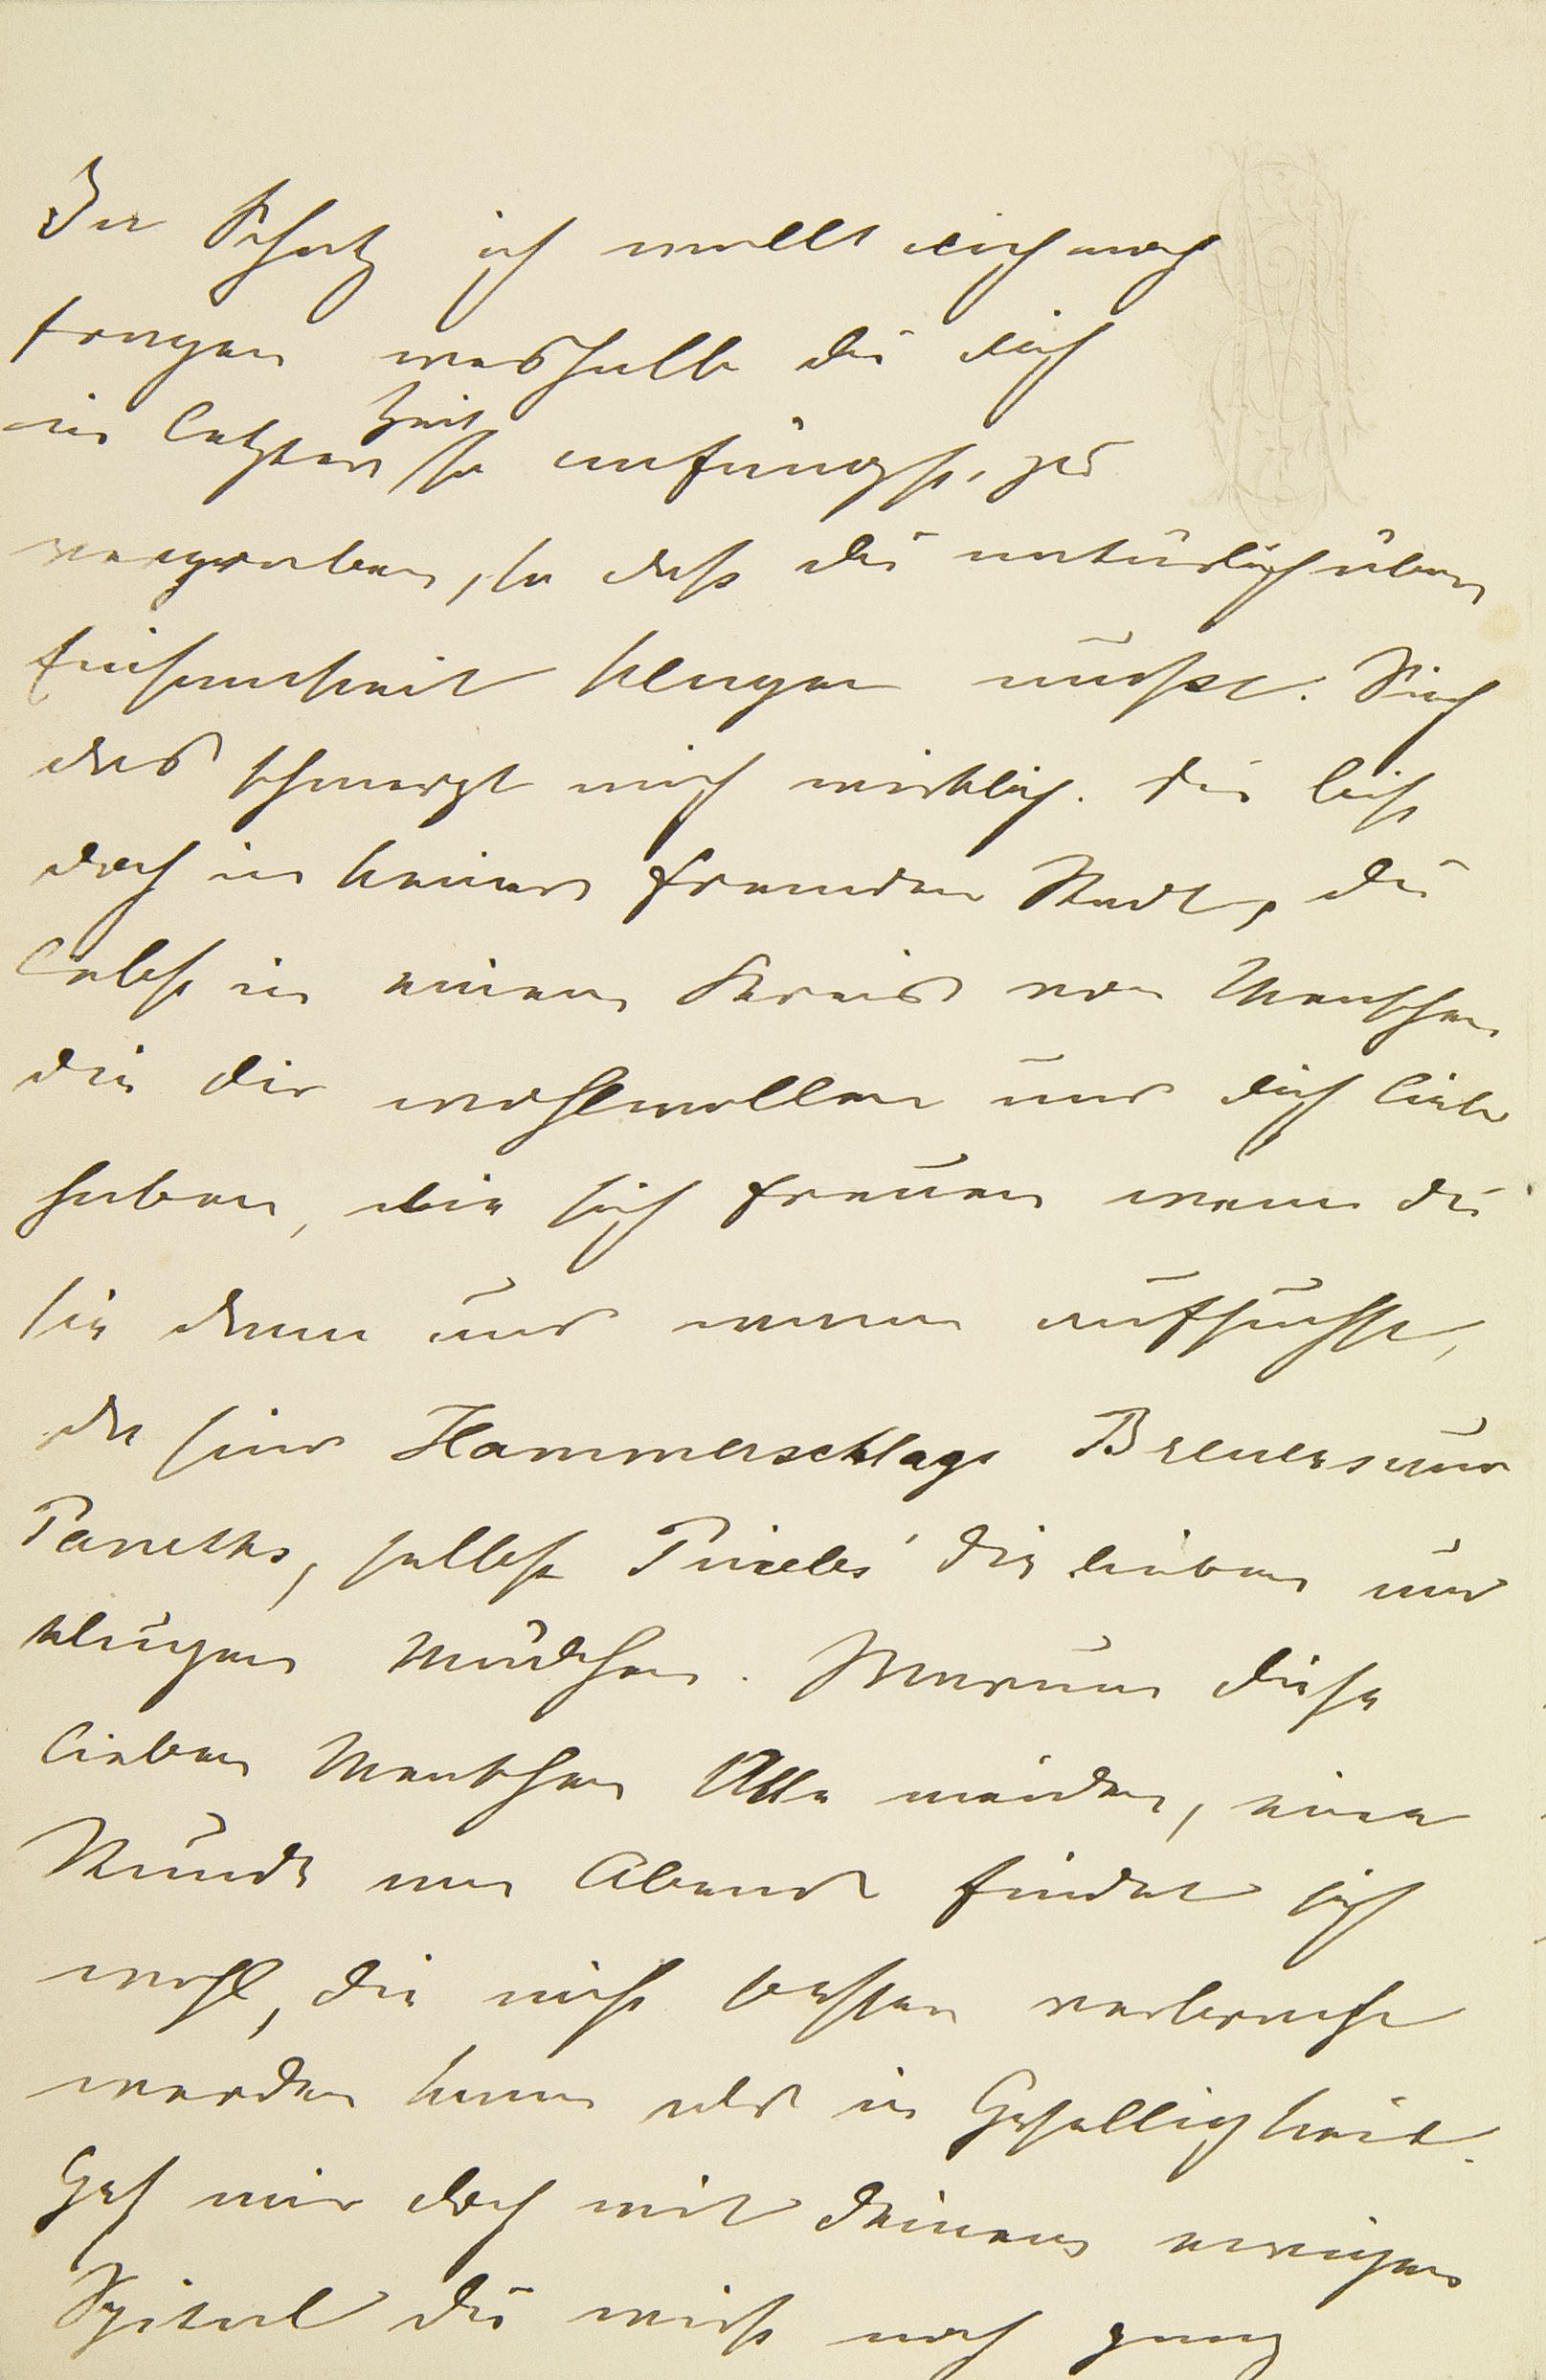 Du Schatz ich wollt dich noch
fragen weßhalb du dich
in letzter Zeit so anfängst, zu
vergraben, so daß du natürlich über
Einsamkeit klagen mußt. Sieh
das schmerzt mich wirklich. Du bist
doch in keiner fremden Stadt, du
lebst in einem Kreis von Menschen
die dir wohlwollen und dich lieb
haben, die sich freuen wenn du
sie dann und wann aufsuchst,
da sind Hammerschlags Breuers und
Paneths, selbst Pineles' die lieben und
klugen Mädchen. Warum diese
lieben Menschen Alle meiden, eine
Stunde am Abend findet sich
wohl, die nicht besser verbracht
werden kann als in Geselligkeit.
Geh mir doch mit deinem ewigen
Spital du wirst noch ganz